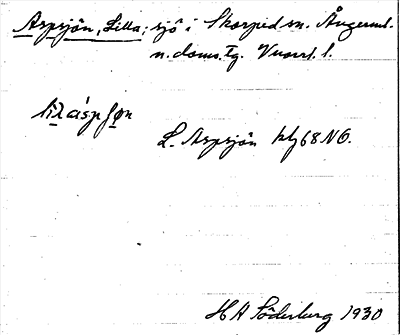 Aspsjön, Lilla; sjö i Skorped sn. Ångerml.
n. doms.
lilaspsøn
L. Aspsjön kbl 68 NO.
HA Söderberg 1930